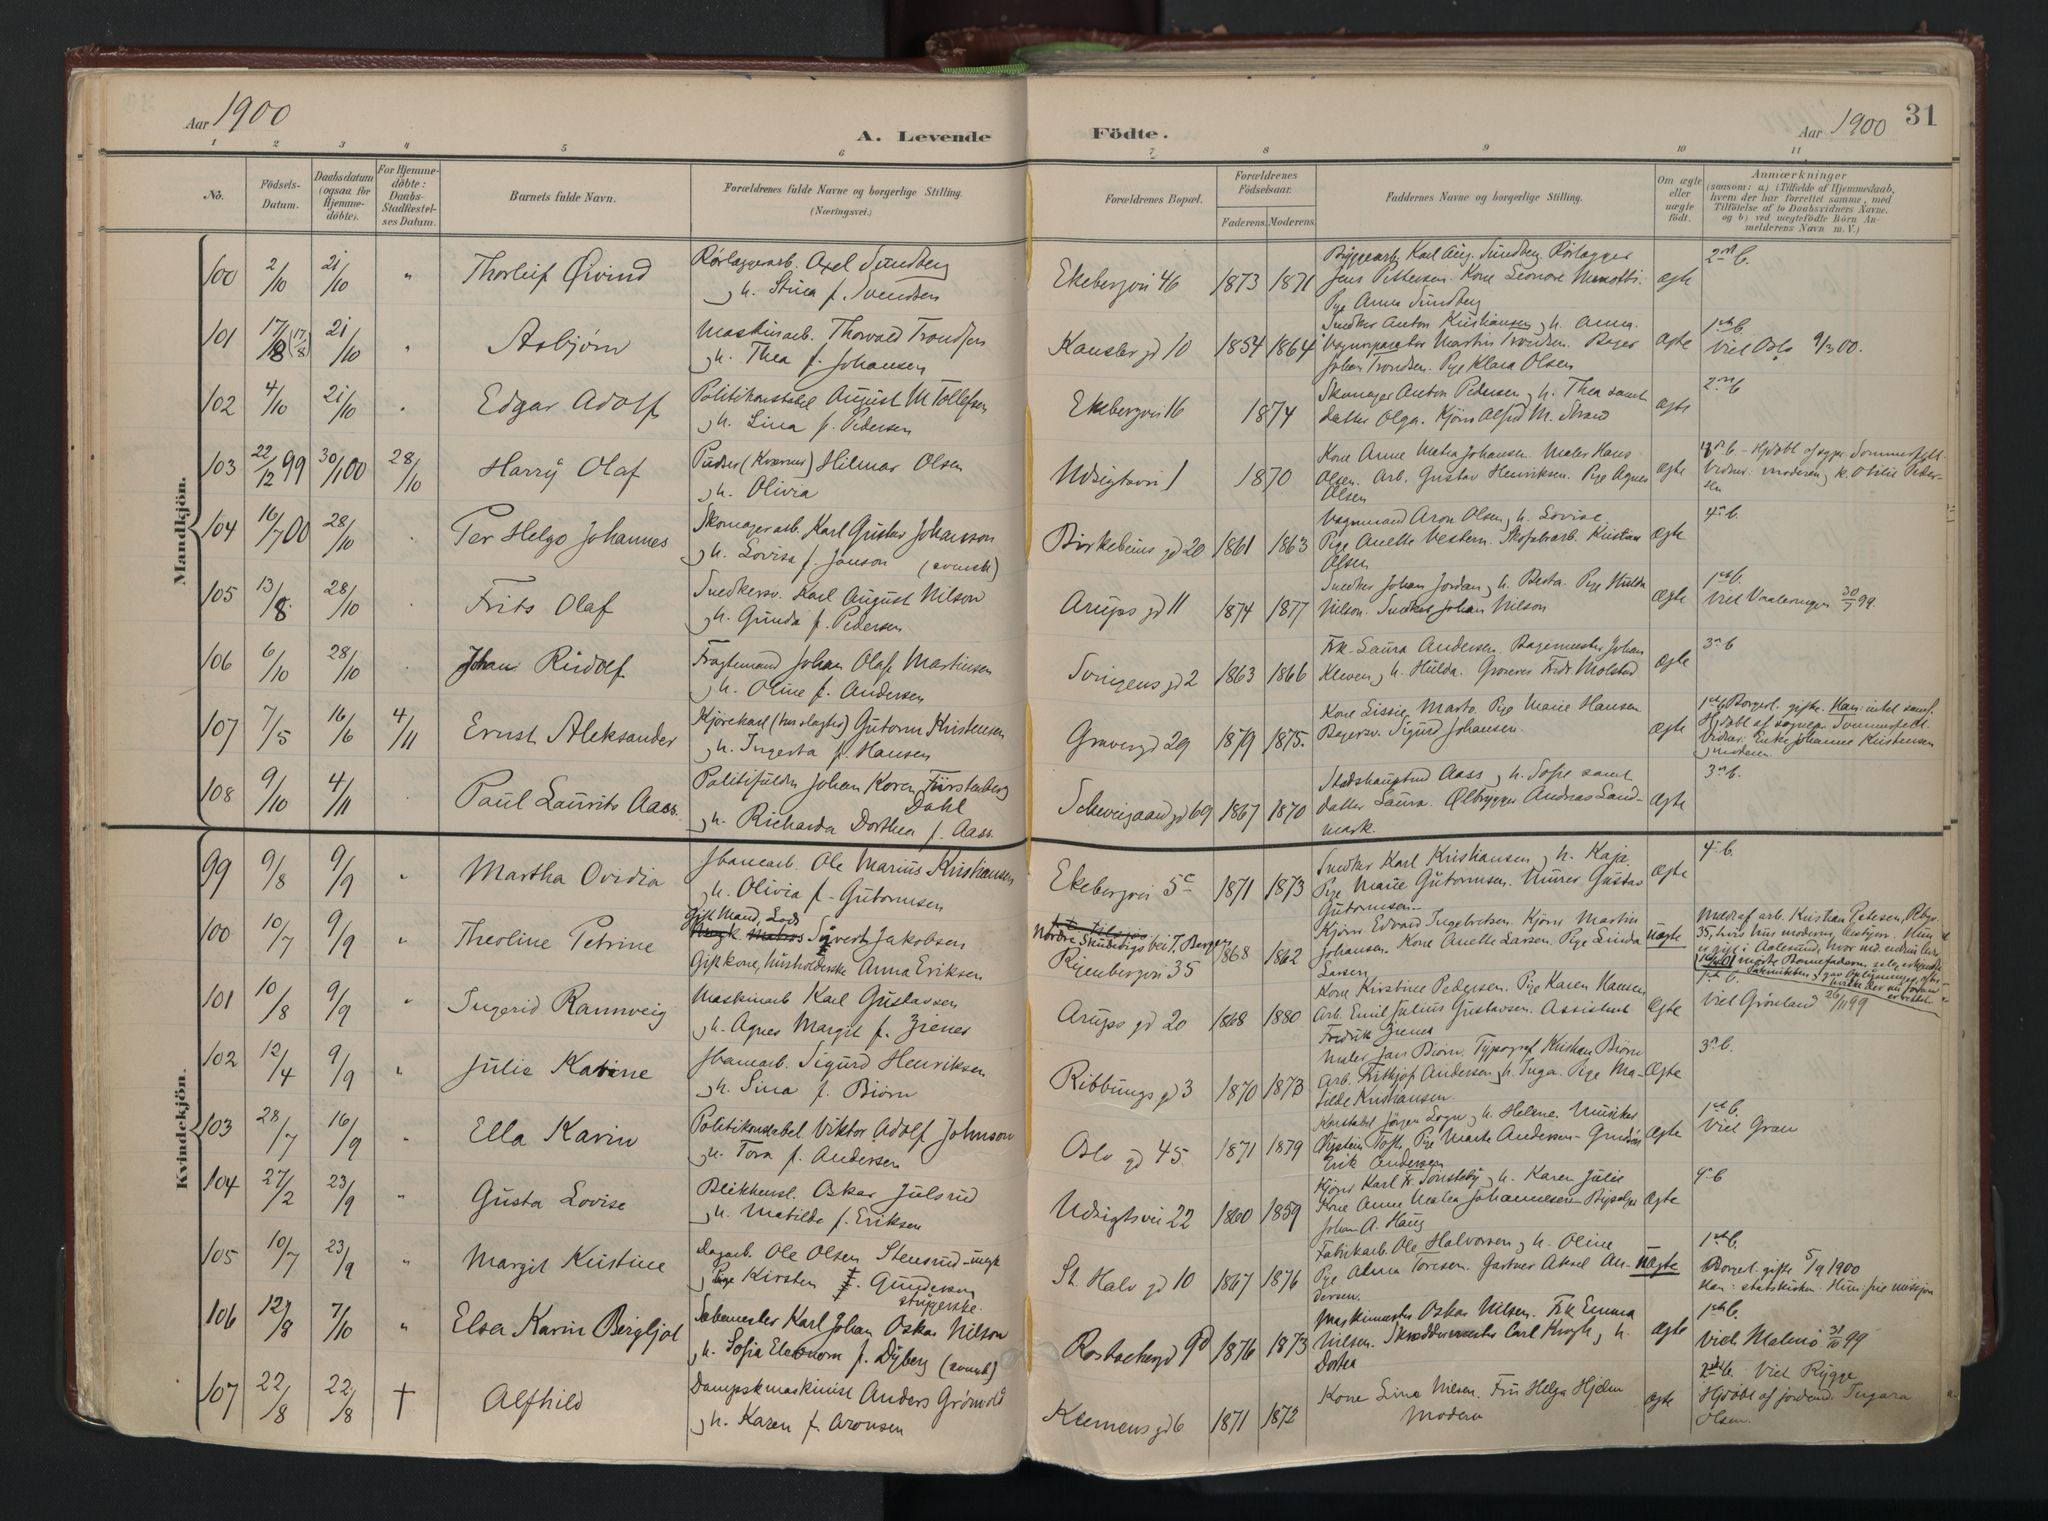 Aar 1900
A. Levende
Födte.
Aar 1900
31
1 2 3 4 5 6 7 8 9 10 11
No.
Födsels-
Datum.
Daabsdatum
(ogsaa for
Hjemme-
döbte).
For Hjemme-
döbte:
Daabs-
Stadfæstel-
ses Datum.
Barnets fulde Navn.
Forældrenes fulde Navne og borgerlige Stilling.
(Næringsvei.)
Forældrenes Bopæl.
Forældrenes
Födselsaar.
Faderens. Moderens.
Faddernes Navne og borgerlige Stilling.
Om ægte
eller
uægte
födt.
Anmærkninger
(saasom: a) i Tilfælde af Hjemmedaab,
hvem der har forrettet samme, med
Tilföielse af to Daabsvidners Navne,
og b) ved uægtefödte Börn An-
melderens Navn m. V.)
Mandkjön.
100 2/10 21/10 " Thorleif Øivind
Rørlæggerarb. Axel Sundberg
og h. Stina f. Svendsen
Ekebergvei 46 1873 1871
Bryggearb. Karl Aug. Sundberg. Rørlægger
Jens Pettersen. Kone Leonore
Pige Anna Sundberg
ægte
101 17/8 (17/8) 21/10 " Asbjørn
Maskinarb. Thorvald Trondsen
og h. Thea f. Johansen
Kansler gd 10 1854 1864
Snedker Anton Kristiansen og h. Anna.
Vognreparatør Martin Trondsen. Bager
Johan Trondsen. Pige Klara Olsen
ægte
1ste b.
Viet Oslo 9/3 00.
102 4/10 21/10 " Edgar Adolf
Politikonstabel August M Tollefsen
og h. Lina f. Pedersen
Ekebergvei 16 1874
Skomager Anton Pedersen og h. Thea samt
datter Olga. Kjører Alfred M. Strand
ægte
103 22/12 99 30/1 00 28/10 Harry Olaf
Pudser (Kværner) Hilmar Olsen
og h. Olivia
Udsigtsvei 1 1870
Kone Anne Matea Johansen. Maler Hans
Olsen. Arb. Gustav Henriksen. Pige Agnes
Olsen
ægte
104 16/7 00 28/10 " Per Helge Johannes
Skomagerarb. Karl Gustav Johansson
og h. Lovisa f. Janson (svensk)
Birkebeins gd 20 1861 1863
Vognmand Aron Olsen og h. Lovise.
Pige Anette Vestern. Skofabarb. Kristian
Olsen
ægte
4de b.
105 13/8 28/10 " Frits Olaf
Snedkersv. Karl August Nilson
og h. Gunda f. Pedersen
Arups gd 11 1874 1877
Snedker Johan Jordan og h. Berta. Pige Hulda
Nilson. Snedker Johan Nilson
ægte
1ste b.
Viet Vaalerengen 30/7 99.
106 6/10 28/10 " Johan Rudolf
Fragtemand Johan Olaf Martinsen
og h. Oline f. Andersen
Sverigens gd 2 1863 1866
Frk. Laura Andersen. Bagermester Johan
Kleven og h. Hulda. Grosserer Fredr Molstad
ægte
3de b
107 7/5 16/6 4/11 Ernst Aleksander
Kjørekarl (hos slagter) Gutorm Kristensen
og h. Ingerta f. Hansen
Graver gd 29 1879 1875.
Kone Lissie Marto. Pige Marie Hansen
Bagersv. Sigurd Johansen.
ægte
1ste b Borgerl. gifte. Han: intet samf.
Hjdøbt af sognepr. Sommerfelt.
Vidner: Enke Johanne Kristensen
og moderen
108 9/10 4/11 " Paul Laurits Aass.
Politifuldm Johan Koren Fürstenberg
Dahl
og h. Richarda Dorthea f. Aass.
Schweigaard gd 69 1867 1870
Stadshauptmd Aass og h. Sofie samt
datter Laura. Ølbrygger Andreas Land-
mark.
ægte
3de b.
Kvindekjön.
99 9/8 9/9 " Martha Ovidia
Jbanearb. Ole Marius Kristiansen
og h. Olivia f. Gutormsen
Ekebergvei 5c 1871 1873
Snedker Karl Kristiansen og h. Kaja.
Pige Marie Gutormsen. Murer Gustav
Gutormsen
ægte
4de b.
100 10/7 9/9 " Theoline Petrine
Gift Mand, Lods
Sivert Jakobsen
Gift kone, husholderske Anna Eriksen
Ryenbergvei 35 1868 1862
Kjører Edvard Ingebretsen. Kjører Martin
Johansen. Kone Anette Larsen. Pige Linda
Larsen
uægte
101 10/8 9/9 " Ingerid Rannveig
Maskinarb Karl Gustavsen
og h. Agnes Margit f. Zienes
Arups gd 20 1868 1880
Kone Kirstine Pedersen. Pige Karen Hansen
Arb. Emil Julius Gustavsen. Assistent
Fredrik Zienes
ægte
1ste b.
Viet Grønland 26/11 99
102 12/4 9/9 " Julie Katrine
Jbanearb. Sigurd Henriksen
og h. Lina f. Biørn
Ribbungs gd 3 1870 1873
Maler Jan Biørn. Typograf Kristian Biørn
Arb. Fritjof Andersen og h. Inga. Pige Ma-
tilde Kristiansen
ægte
3de b.
103 28/7 16/9 " Ella Karin
Politikonstabel Viktor Adolf Johnson
og h. Tora f. Andersen
Oslo gd 45. 1871 1879
Konstabel Jørgen Sogn og h. Helene. Musiker
Øystein Toft. Pige Marta Andersen
Erik Andersen
ægte
1ste b.
Viet Gran
104 27/2 23/9 " Gusta Lovise
Blikkensl. Oskar Julsrud
og h. Matilde f. Eriksen
Udsigtsvei 22 1860 1859
Kjører Karl Fr Tønseby og h. Karen Julie
Kone Anne Matea Johannesen
Johan A. Haug
ægte
4de b
105 10/7 23/9 " Margit Kristine
Dagarb. Ole Olsen Stensrud - ungk
og Pige Kirsten Gundersen
strygerske.
St. Halv gd 10 1867 1876
Fabrikarb. Ole Halvorsen og h. Oline
Pige Alma Toresen. Gartner Aksel An-
dersen.
uægte
1ste b.
Borgerl. gifte 5/9 1900
Han: statskirken. Hun: frie misjon
106 12/8 7/10 " Elsa Karin Bergljot
Sæbemester Karl Johan Oskar Nilson
og h. Sofia Eleonora f. Dyberg (svensk)
1876 1873
Maskinmester Oskar Nilsen. Frk Emma
Nilsen. Skræddermester Carl Krogh og h.
Dortea
ægte
1ste b.
Viet Malmö 31/10 99
107 22/8 22/8 † Alfhild
Dampskmaskinist Anders Grønvold
og h. Karen f. Aronsen
Klemens gd 6 1871 1872
Kone Lina Nilsen. Fru Helga Hjelm
Modern
ægte
2den b. Viet Rygge
Hjdøbt af jordmd. Ingara
Olsen.